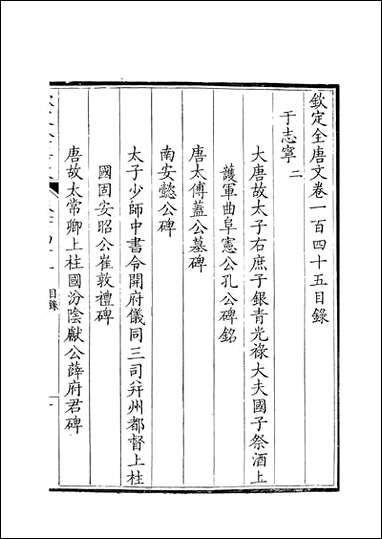 欽定全唐文卷一百四十五目錄
于志寧 二
大唐故太子右庶子銀青光祿大夫國子祭酒上
護軍曲阜憲公孔公碑銘
唐太傅蓋公墓碑
南安懿公碑
太子少師中書令開府儀同三司并州都督上柱
國固安昭公崔敦禮碑
唐故太常卿上柱國汾陰獻公薛府君碑
目錄
一